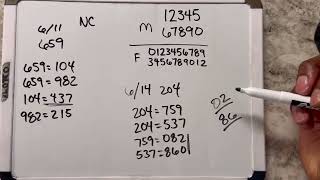 6/11 NC
659
659=104
659=982
104=437
982=215
M 12345
67890
F 0123456789
3456789012
6/14 204
204=759
204=537
759=082
537=860
02
86